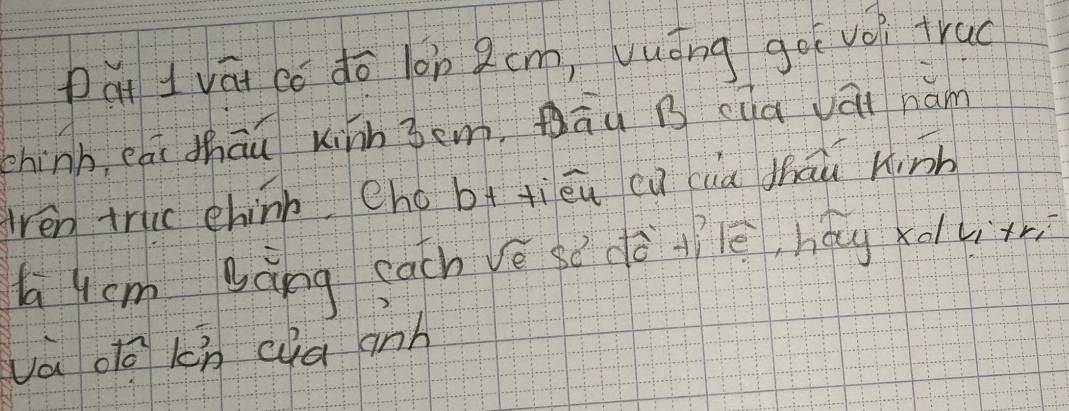 Đặt 1 vật có độ lớn 2cm, vuông góc với trục
chính, cái thấu kính 3cm. Đầu B của vật nằm
trên trục chính. Cho bt tiêu cự của thấu kính
là 4cm Bằng cách vẽ sơ đồ tỉ lệ, hãy xđ vị trí
và độ lớn của ảnh